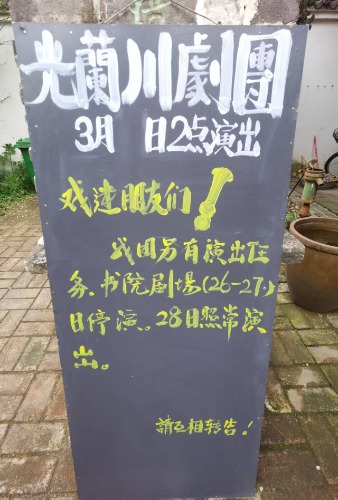 光蘭川劇團
3月 日2点演出
戏迷朋友们!
我团另有演出任
务.书院剧场(26-27)
日停演。28日照常演
出。
請互相转告!